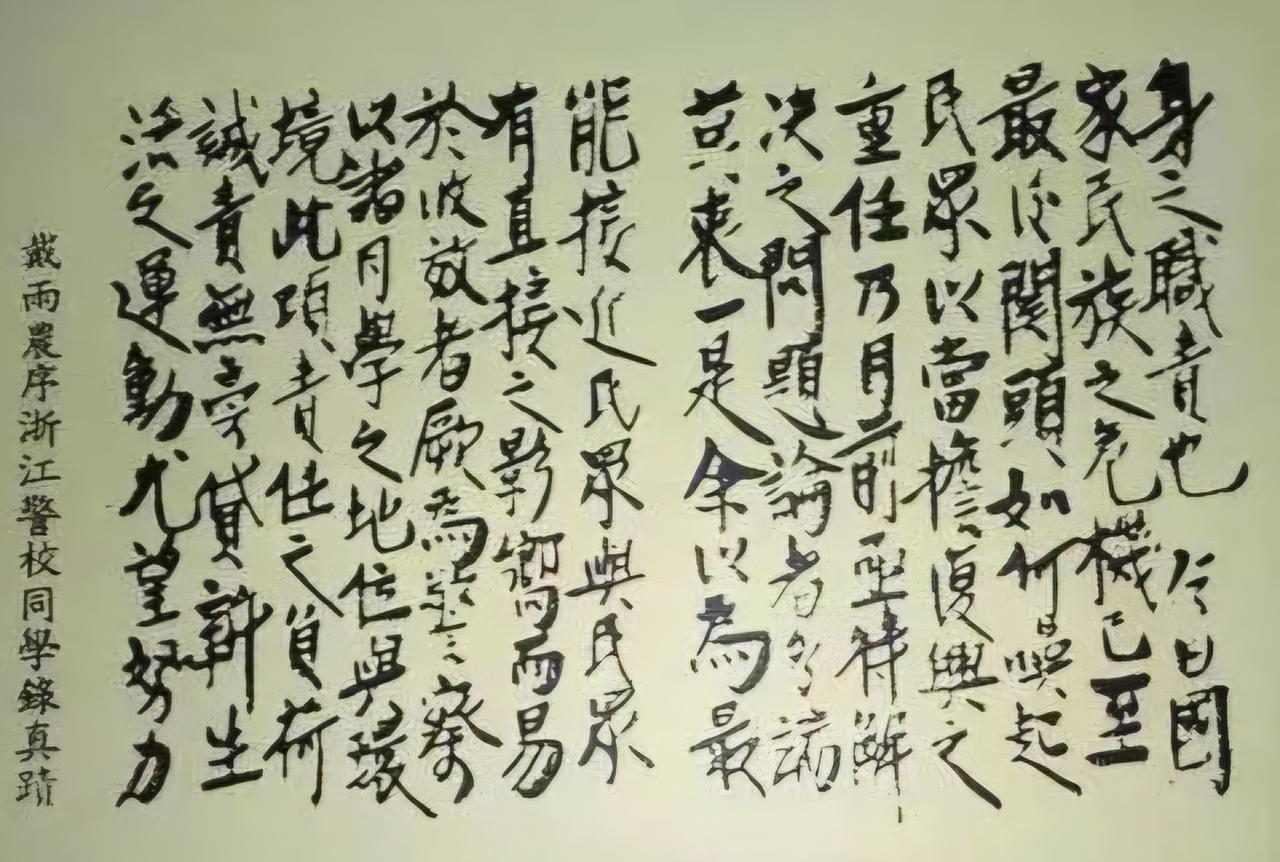 身之職責也今日國
家民族之危機已至
最後關頭如何喚起
民眾以當擔復興之
重任乃目前亟待解
決之問題論者多
莫衷一是余以為最
能接近民眾與民眾
有直接之影響而易
於收效者厥為警察
以諸同學之地位與環
境此項責任之負荷
誠責無旁貸新生
活之運動尤望努力
戴雨農序浙江警校同學錄真蹟